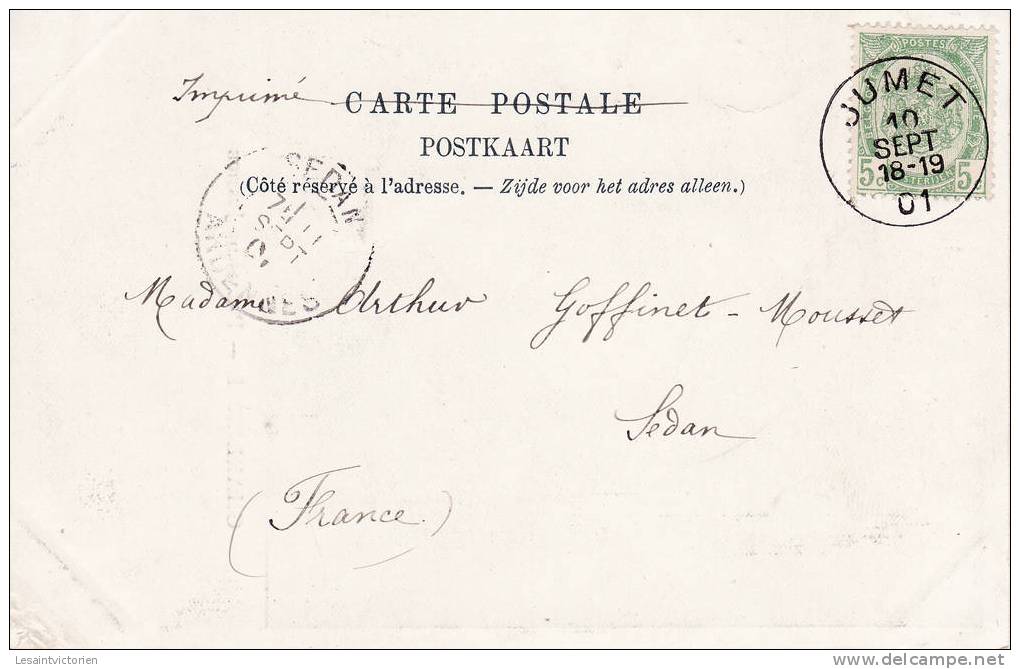 Imprimé CARTE POSTALE
POSTKAART
(Côté réservé à l'adresse. — Zijde voor het adres alleen.)
POSTES
5 c 5
JUMET
10
SEPT
18-19
01
SEDAN
11
SEPT
01
ARDENNES
Madame Arthur Goffinet - Mousset
Sedan
(France.)
Lesaintvictorien
delcampe.net